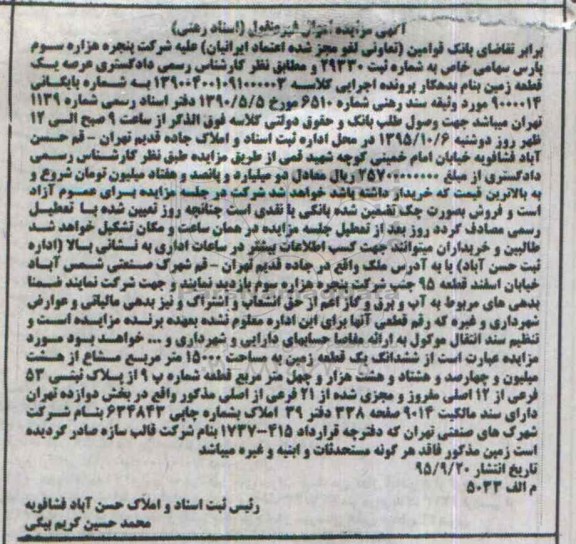 آگهی مزایده اموال غیر منقول (اسناد رهنی)
برابر تقاضای بانک قوامین (تعاونی لغو مجز شده اعتماد ایرانیان) علیه شرکت پنجره هزاره سوم
پارس سهامی خاص به شماره ثبت ۲۹۳۳۰ و مطابق نظر کارشناس رسمی دادگستری عرصه یک
قطعه زمین بنام بدهکار پرونده اجرایی کلاسه ۱۳۹۰۰۳۰۰۱۰۹۱۰۰۰۰۰۳ به شماره بایگانی
۹۰۰۰۰۱۴ مورد وثیقه سند رهنی شماره ۶۵۱۰ مورخ ۱۳۹۰/۵/۵ دفتر اسناد رسمی شماره ۱۱۳۹
تهران میباشد جهت وصول طلب بانک و حقوق دولتی کلاسه فوق الذکر از ساعت ۹ صبح الی ۱۲
ظهر روز دوشنبه ۱۳۹۵/۱۰/۶ در محل اداره ثبت اسناد و املاک جاده قدیم تهران - قم حسن
آباد فشافویه خیابان امام خمینی کوچه شهید قمی از طریق مزایده طبق نظر کارشناس رسمی
دادگستری از مبلغ ۲۵۷۰۰۰۰۰۰۰۰ ریال معادل دو میلیارد و پانصد و هفتاد میلیون تومان شروع و
به بالاترین قیمت که خریدار داشته باشد خواهد شد شرکت در جلسه مزایده برای عموم آزاد
است و فروش بصورت چک تضمین شده بانکی یا نقدی است چنانچه روز تعیین شده با تعطیل
رسمی مصادف گردد روز بعد از تعطیل جلسه مزایده در همان ساعت و مکان تشکیل خواهد شد
طالبین و خریداران میتوانند جهت کسب اطلاعات بیشتر در ساعات اداری به نشانی بالا (اداره
ثبت حسن آباد) یا به آدرس ملک واقع در جاده قدیم تهران - قم شهرک صنعتی شمس آباد
خیابان اسفند قطعه ۹۵ جنب شرکت پنجره هزاره سوم بازدید نمایند و جهت شرکت نمایند ضمنا
بدهی های مربوط به آب و برق و گاز اعم از حق انشعاب و اشتراک و نیز بدهی مالیاتی و عوارض
شهرداری و غیره که رقم قطعی آنها برای این اداره معلوم نشده بعهده برنده مزایده است و
تنظیم سند انتقال موکول به ارائه مفاصا حسابهای دارایی و شهرداری و ... خواهد بود مورد
مزایده عبارت است از ششدانگ یک قطعه زمین به مساحت ۱۵۰۰۰ متر مربع مشاع از هشت
میلیون و چهارصد و هشتاد و هشت هزار و چهل متر مربع قطعه شماره پ ۹ از پلاک ثبتی ۵۳
فرعی از ۱۲ اصلی مفروز و مجزی شده از ۲۱ فرعی از اصلی مذکور واقع در بخش دوازده تهران
دارای سند مالکیت ۹۰۱۴ صفحه ۳۳۸ دفتر ۳۹ املاک بشماره چاپی ۶۳۴۸۴۳ بنام شرکت
شهرک های صنعتی تهران که دفترچه قرارداد ۴۱۵-۱۷۳۷ بنام شرکت قالب سازه صادر گردیده
است زمین مذکور فاقد هر گونه مستحدثات و ابنیه و غیره میباشد
تاریخ انتشار ۹۵/۹/۲۰
م الف ۵۰۳۳
رئیس ثبت اسناد و املاک حسن آباد فشافویه
محمد حسین کریم بیگی